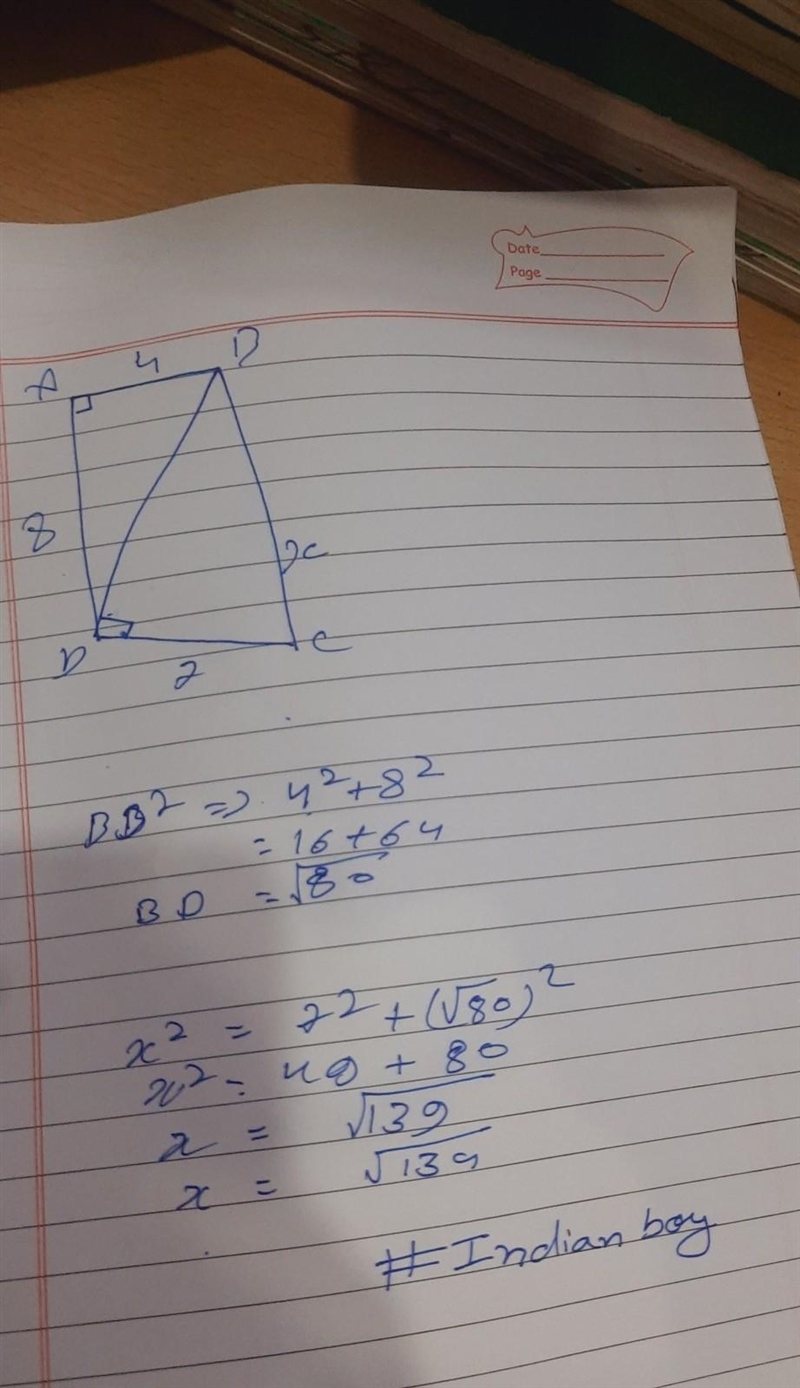 Date
Page
A 4 B
8
x
D 7 C
BD² => 4² + 8²
= 16 + 64
BD = √80
x² = 7² + (√80)²
x² = 49 + 80
x = √139
x = √139
# Indian boy